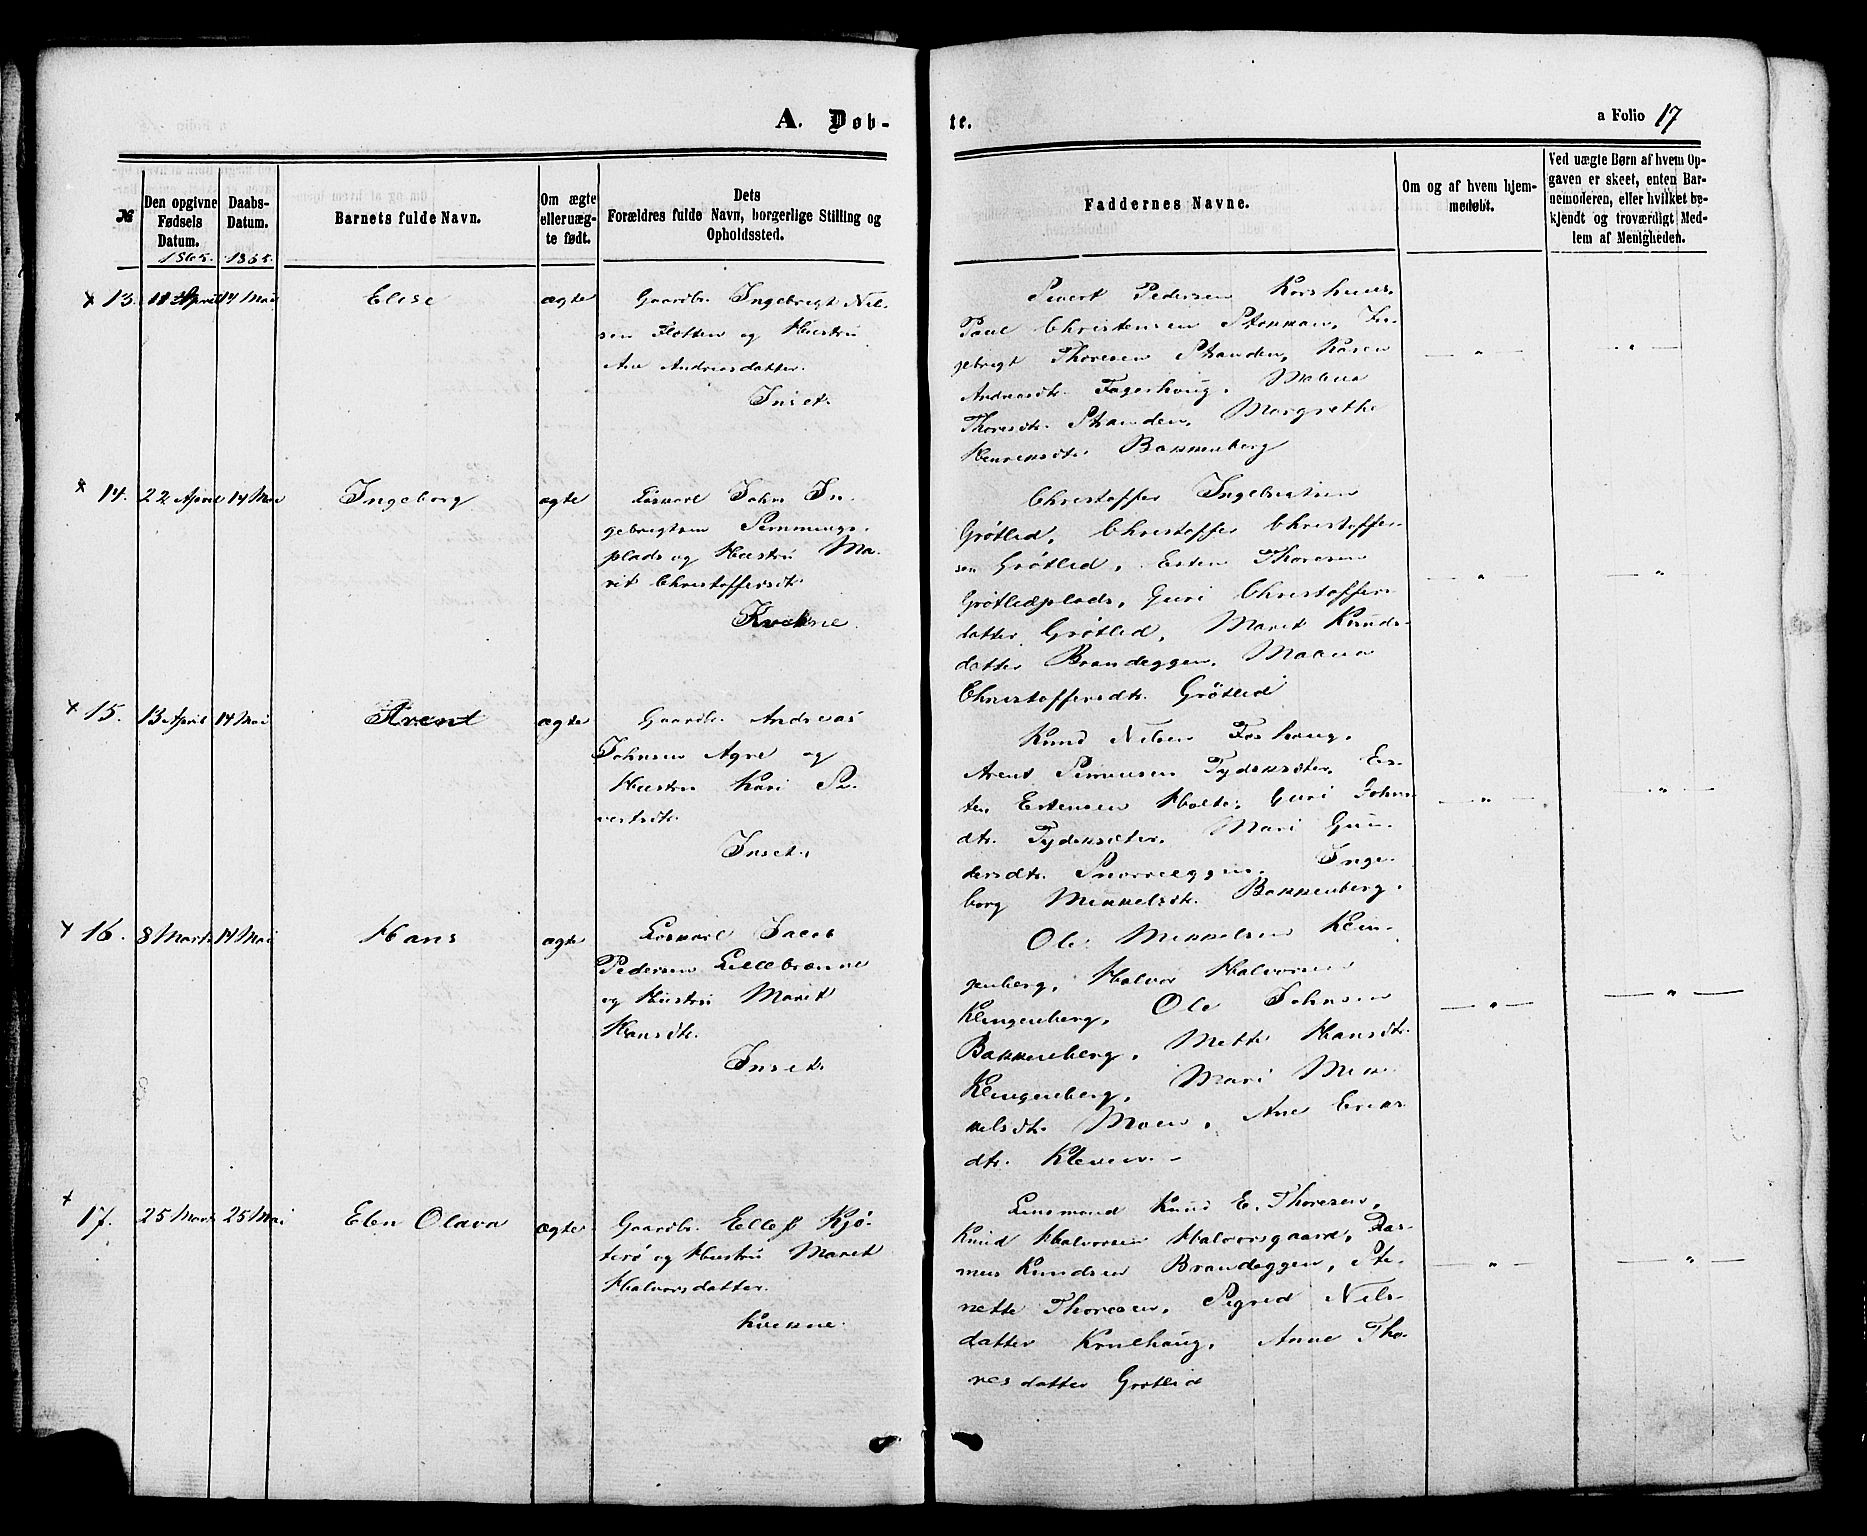 A. Døb-
te.
a Folio 17
№
Den opgivne Fødsels Datum.
1865.
Daabs-Datum.
1865.
Barnets fulde Navn.
Om ægte eller uæg-te født.
Dets
Forældres fulde Navn, borgerlige Stilling og
Opholdssted.
Faddernes Navne.
Om og af hvem hjem-
medøbt.
Ved uægte Børn af hvem Op-
gaven er skeet, enten Bar-
nemoderen, eller hvilket be-
kjendt og troværdigt Med-
lem af Menigheden.
x 13. 18 April 14 Mai Elise ægte
Gaardbr. Ingebrigt Nil-
sen Flotten og Hustru
Ane Andreasdatter.
Inset.
Sivert Pedersen Korshuus.
Paul Christensen Stokkan, In-
gebrigt Thoresen Stranden, Karen
Andreasdtr. Fagerhaug, Malena
Thoresdtr. Stranden, Margrethe
Henriksdtr. Bakkenberg
— „ —
— „ —
x 14. 22 April 14 Mai Ingeborg ægte
Loskarl John In-
gebrigtsen Semmings-
plads og Hustru Ma-
rit Christoffersdtr.
Kvikne.
Christoffer Ingebrigtsen
Grøtlid, Christoffer Christoffer-
sen Grøtlid, Esten Thoresen
Grøtlidplads, Guri Christoffers-
datter Grøtlid, Marit Knuds-
datter Brandeggen, Malena
Christoffersdtr. Grøtlid
— „ —
— „ —
x 15. 13 April 14 Mai Arent ægte
Gaardbr. Andreas
Johnsen Agre og
Hustru Kari Si-
vertsdtr.
Inset.
Knud Nilsen Foshaug,
Arent Simensen Tydskseter, Es-
ten Estensen Holte, Guri Johns-
dtr. Tydskseter, Mari Gun-
dersdtr. Snorreeggen, Inge-
borg Mikkelsdtr. Bakkenberg.
— „ —
— „ —
x 16. 8 Marts 14 Mai Hans ægte
Loskarl Jacob
Pedersen Lillebrænne
og Hustru Marit
Hansdtr.
Inset.
Ole Mikkelsen Klin-
genberg, Halvor Halvorsen
Klingenberg, Ole Johnsen
Bakkenberg, Mette Hansdtr.
Klingenberg, Mari Mik-
kelsdtr. Moen, Ane Eriks-
dtr. Kleven. —
— „ —
— „ —
x 17. 25 Marts 25 Mai Elen Olava ægte
Gaardbr. Ellef Kjø-
terø og Hustru Marit
Halvorsdatter.
Kvikne.
Lensmand Knud E. Thoresen,
Knud Halvorsen Halvorsgaard, Ras-
mus Knudsen Brandeggen, Ste-
nette Thoresen, Sigrid Nils-
datter Krulhaug, Anne Tho-
resdatter Grøtlid
— „ —
— „ —